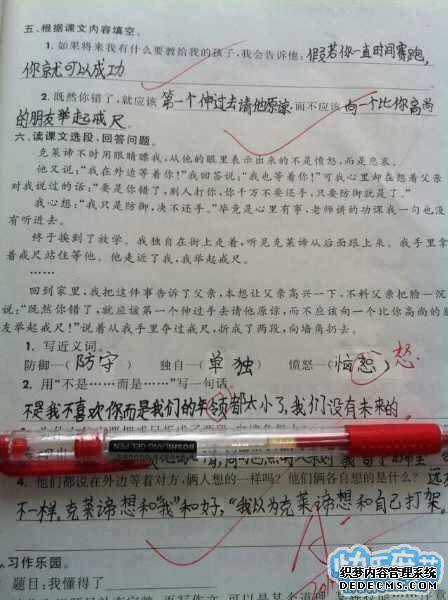 五、根据课文内容填空。
1.如果将来我有什么要教给我的孩子,我会告诉他:假若你一直时间赛跑,
你就可以成功
2.既然你错了,就应该第一个伸过去请他原谅而不应该向一个比你高尚
的朋友举起戒尺。
六、读课文选段,回答问题。
克莱谛不时用眼睛瞟我,从他的眼里表示出来的不是愤怒,而是悲哀。
他又说:“我在外边等着你!”我回答说:“我也等着你!”可我心里却在想着父亲
对我说过的话:“要是你错了,别人打你,你千万不要还手,只要防御就是了。”
我心想:“我只是防御,决不还手。”毕竟是心里有事,老师讲的功课我一句也没
有听进去。
终于挨到了放学。我独自在街上走着,听见克莱谛从后面跟上来。我手里拿
着戒尺站住等他。他走近了我,我举起戒尺。
……
回到家里,我把这件事告诉了父亲,本想让父亲高兴一下,不料父亲把脸一沉
说:“既然你错了,就应该第一个伸过手去请他原谅,而不应该向一个比你高尚的朋
友举起戒尺!”说着从我手里夺过戒尺,折成了两段,向墙角扔去。
1.写近义词。
防御—(防守) 独自—(单独) 愤怒—(恼怨) 怒
2.用“不是……而是……”写一句话。
不是我不喜欢你而是我们的年领都太小了,我们没有未来的。
4.他们都说在外边等着对方,俩人想的一样吗?他们俩各自想的是什么?
不一样。克莱谛想和“我”和好,“我以为克莱谛想和自己打架。
习作乐园。
题目:我懂得了